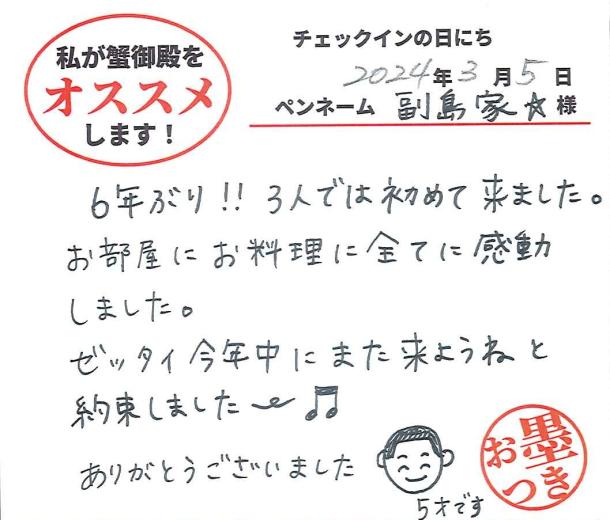 私が蟹御殿を
オススメ
します！
チェックインの日にち
2024年3月5日
ペンネーム 副島家☆様
6年ぶり!! 3人では初めて来ました。
お部屋にお料理に全てに感動
しました。
ゼッタイ今年中にまた来ようねと
約束しました〜♫
ありがとうございました
5才です
お墨
つき